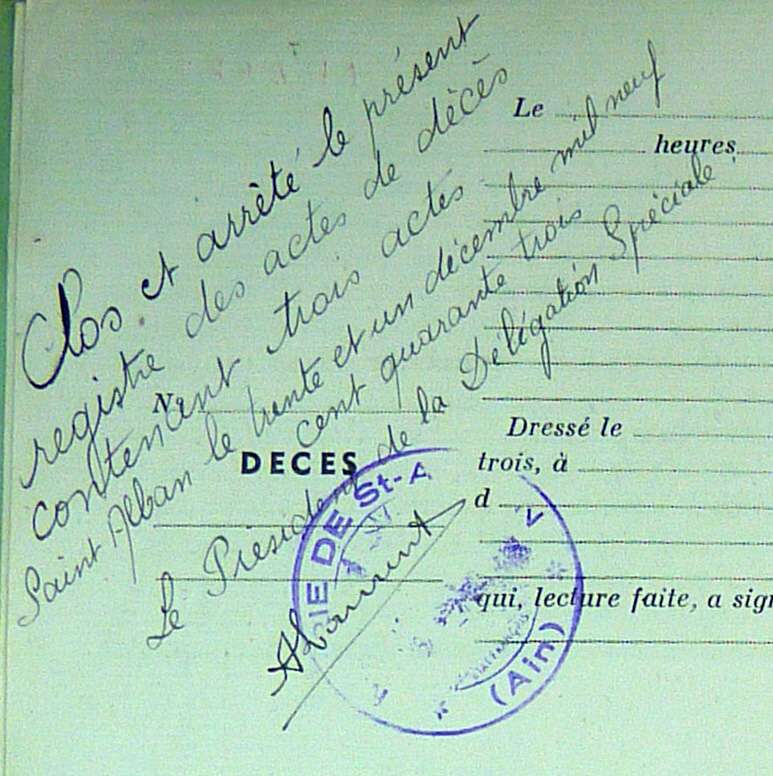 Clos et arrêté le présent
registre des actes de décès
contenant trois actes.
Saint Alban le trente et un décembre mil neuf
cent quarante trois
Le Président de la Délégation Spéciale.
Le
heures
N
DECES
Dressé le
trois, à
d
qui, lecture faite, a sign
RIE DE St-A
(Ain)